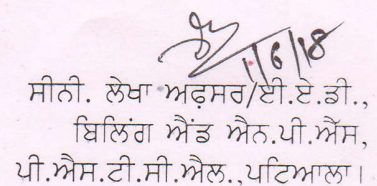 1/6/18
ਸੀਨੀ. ਲੇਖਾ ਅਫ਼ਸਰ/ਈ.ਏ.ਡੀ.,
ਬਿਲਿੰਗ ਐਂਡ ਐਨ.ਪੀ.ਐੱਸ,
ਪੀ.ਐਸ.ਟੀ.ਸੀ.ਐਲ.,ਪਟਿਆਲਾ।